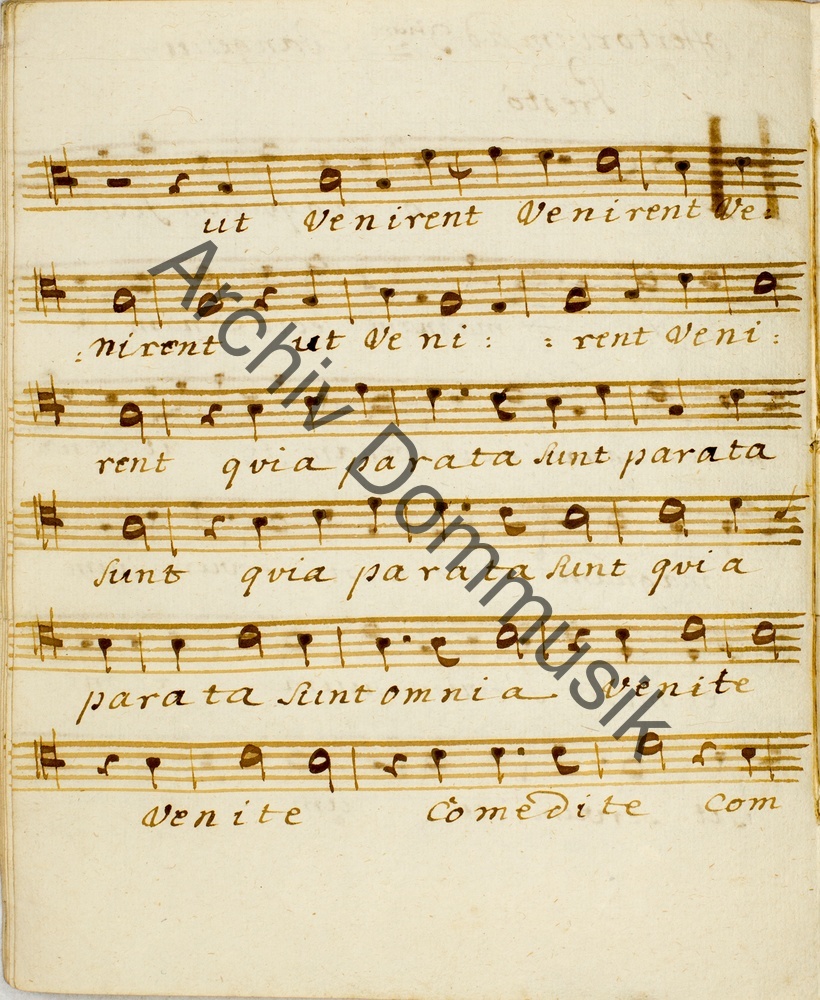 ut Venirent Venirent Ve:
:nirent ut Ve ni : : rent Veni :
rent qvia parata sunt parata
sunt qvia parata sunt qvi a
parata sunt omnia Venite
Venite Comedite Com
Archiv Dommusik